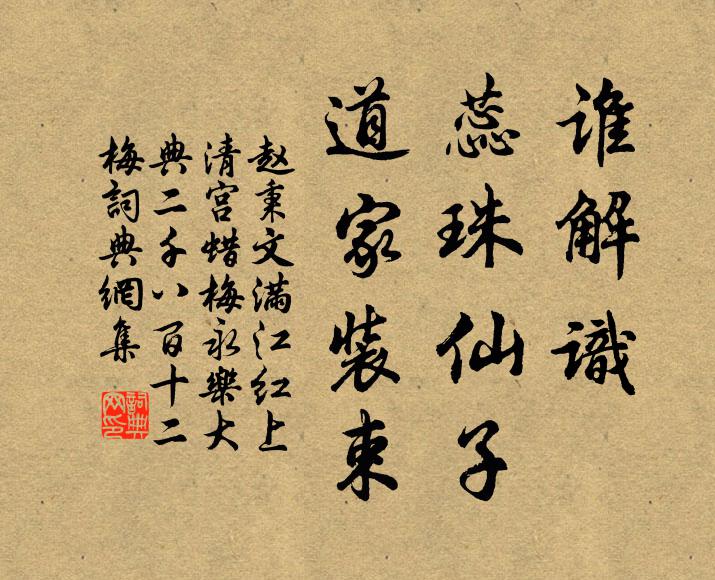 谁解識
蕊珠仙子
道家装束
赵秉文满江红上
清宫蜡梅永樂大
典二千八百十二
梅詞典網集
詞典網印